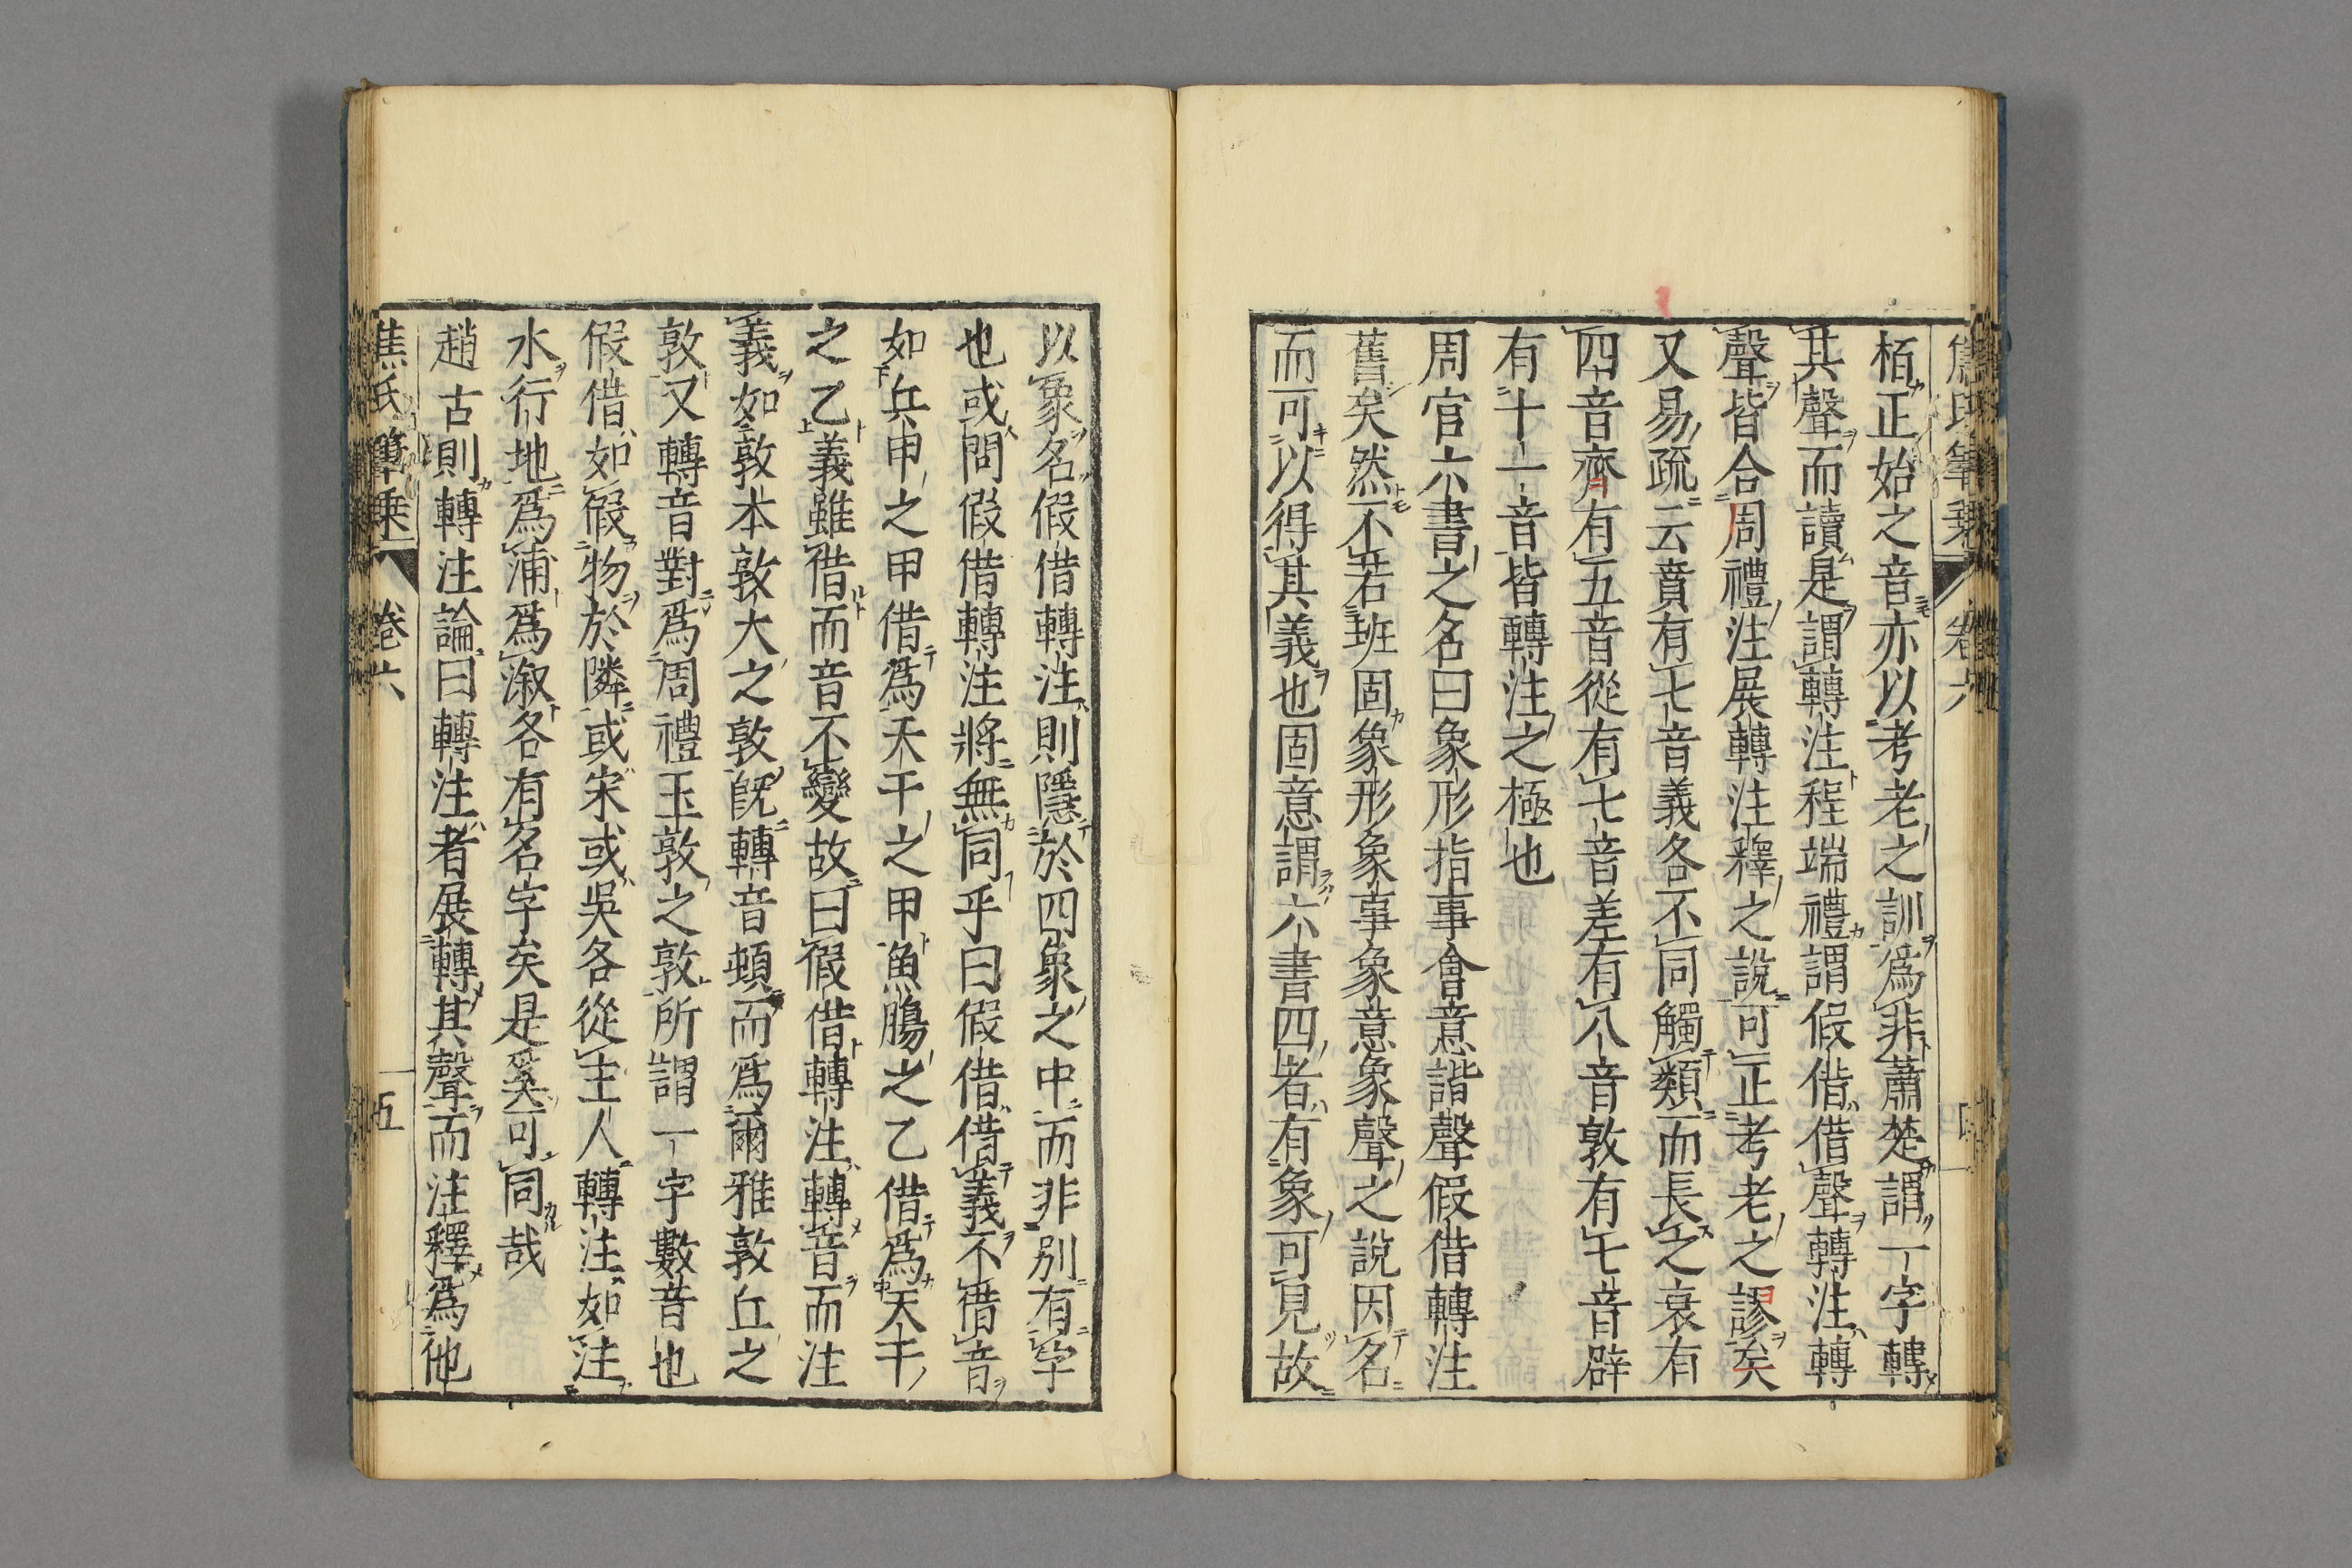 栢正始之音亦以考老之訓爲非蕭楚謂一字轉
其聲而讀是謂轉注程端禮謂假借借聲轉注轉
聲皆合周禮注展轉注釋之說可正考老之謬矣
又易疏云賁有七音義各不同觸類而長之衰有
四音齊有五音從有七音差有八音敦有七音辟
有十一音皆轉注之極也
周官六書之名曰象形指事會意諧聲假借轉注
舊矣然不若班固象形象事象意象聲之說因名
而可以得其義也固意謂六書四者有象可見故
以象名假借轉注則隱於四象之中而非別有字
也或問假借轉注將無同乎曰假借借義不借音
如兵甲之甲借爲天干之甲魚膓之乙借爲天干
之乙義雖借而音不變故曰假借轉注轉音而注
義如敦本敦大之敦既轉音頓而爲爾雅敦丘之
敦又轉音對爲周禮玉敦之敦所謂一字數音也
假借如假物於隣或宋或吳各從主人轉注如注
水行地爲浦爲漵各有名字矣是奚可同哉
趙古則轉注論曰轉注者展轉其聲而注釋爲他
焦氏筆乗 卷六 五